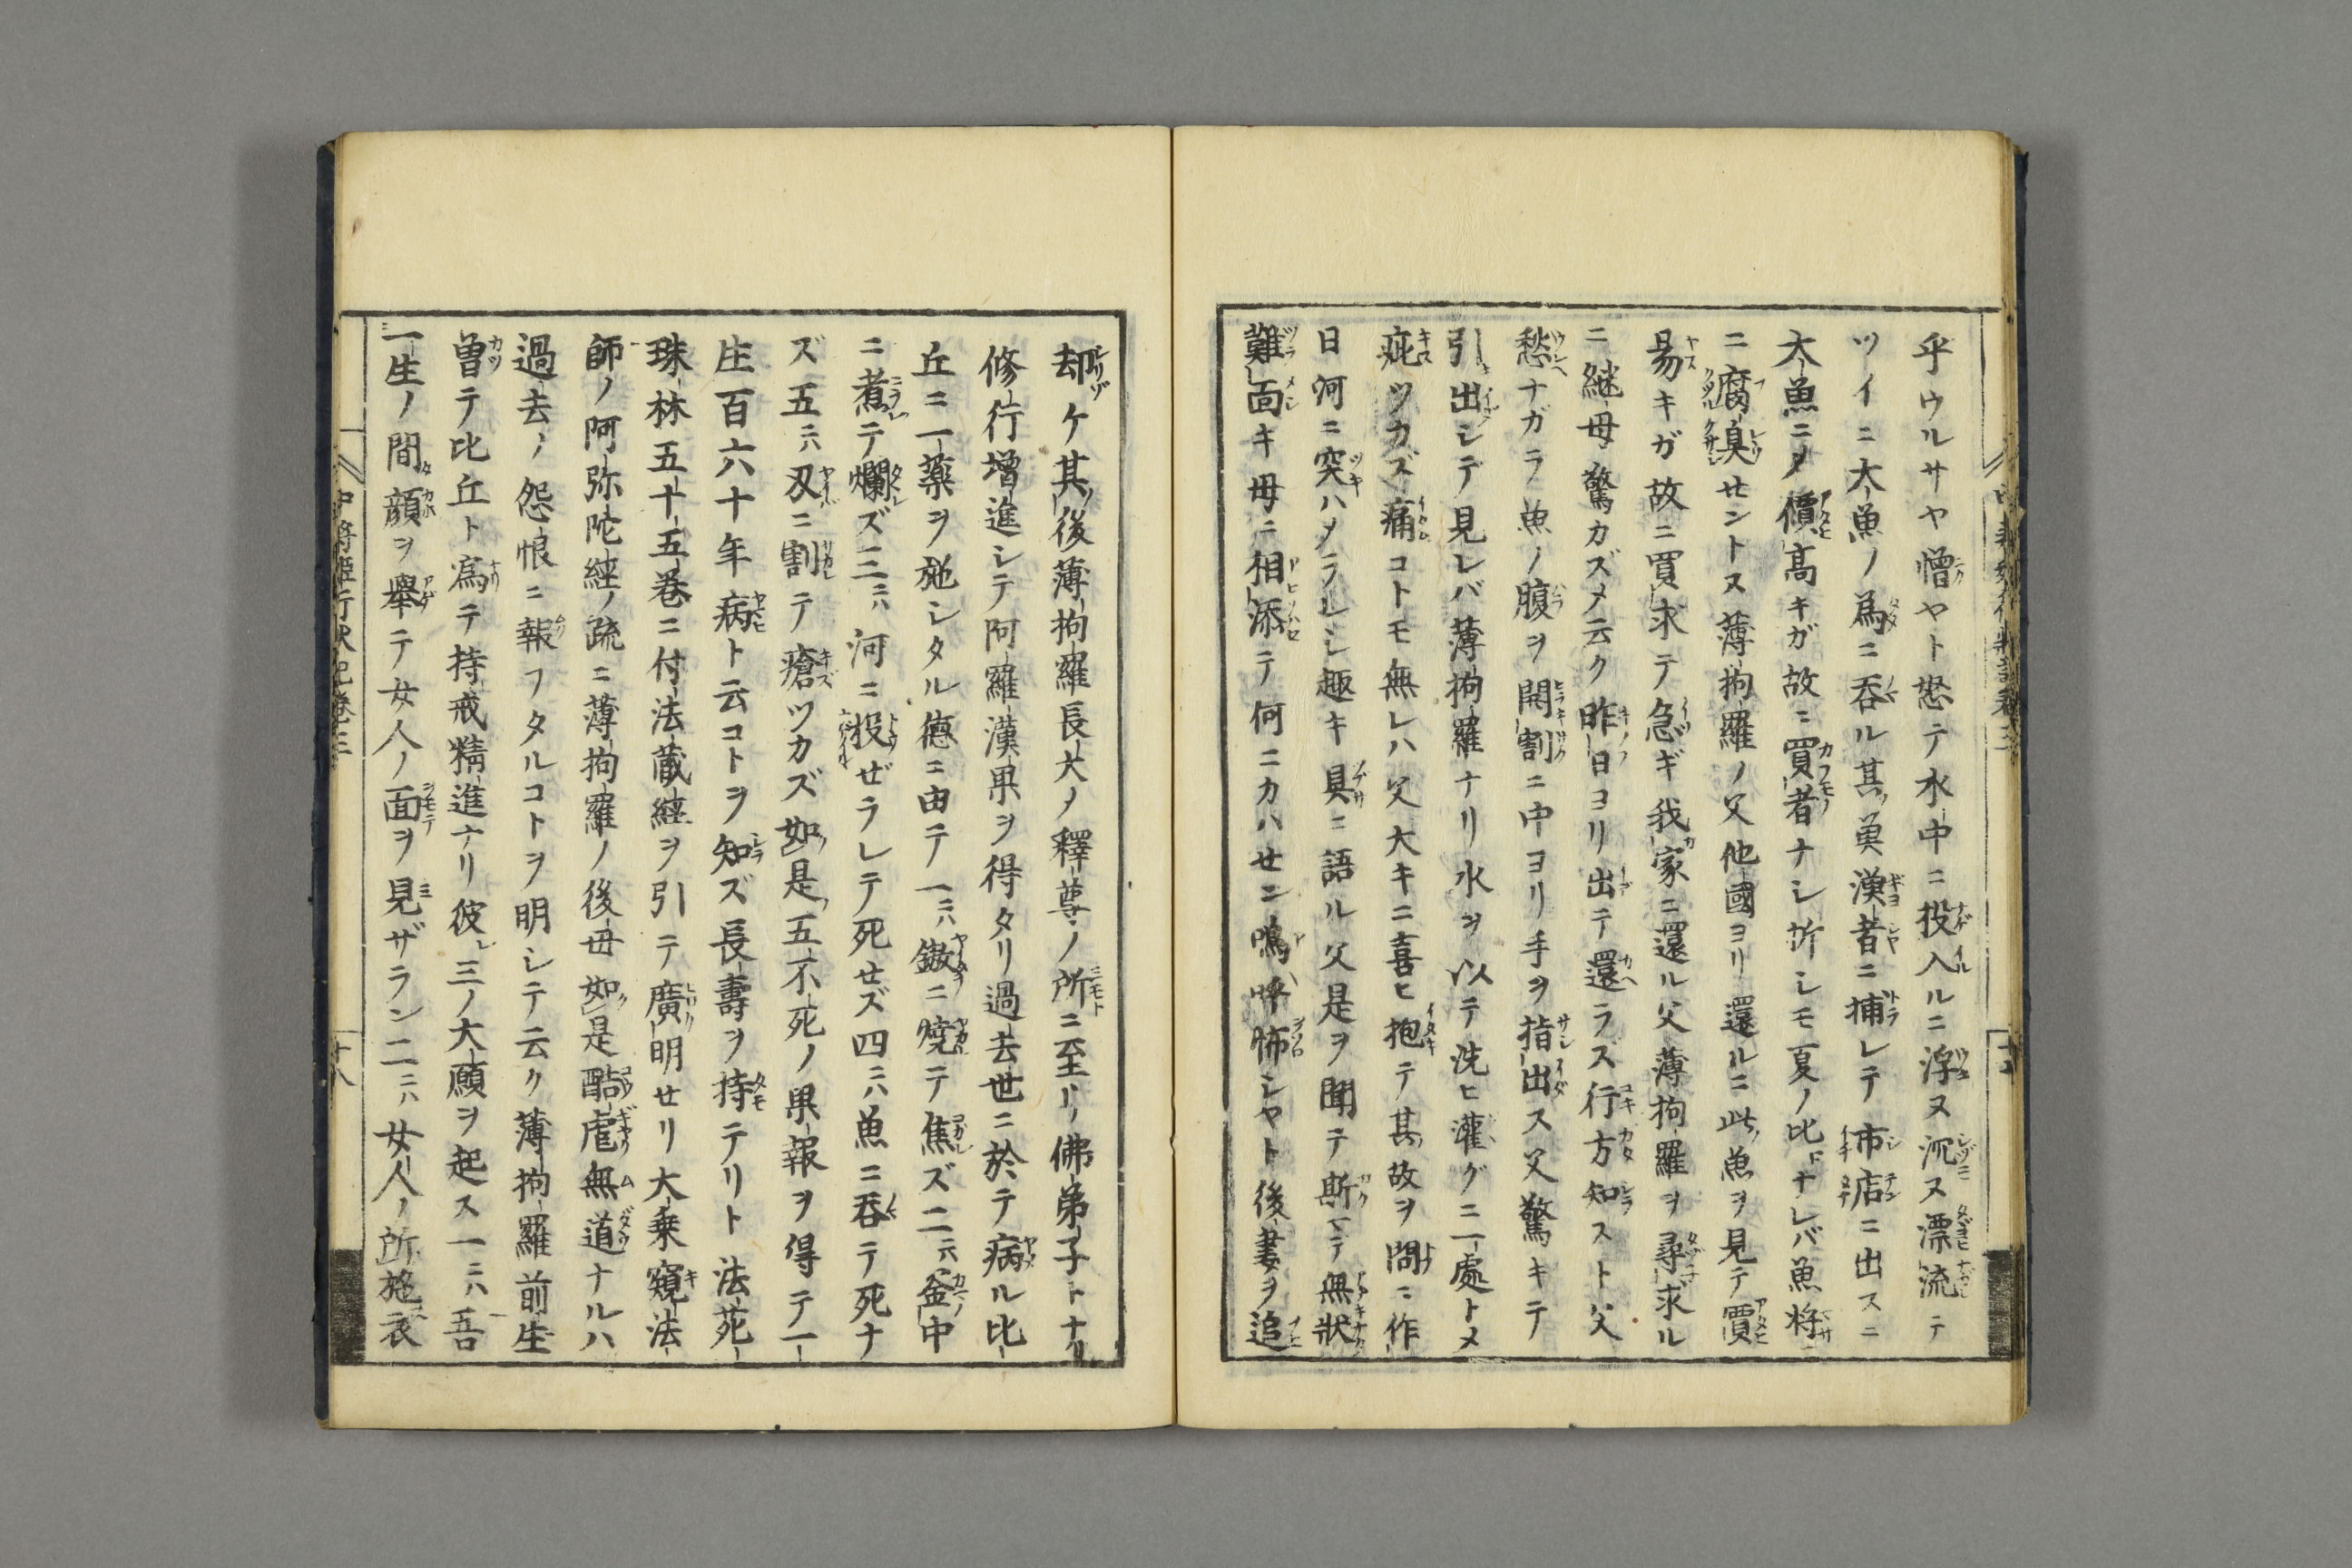 乎ウルサヤ憎ヤト怒テ水中ニ投入ルニ浮ヌ沉ヌ漂流テ
ツイニ大魚ノ為ニ呑ル其ノ奠漢者ニ捕レテ市店ニ出スニ
大魚ニメ價高キガ故ニ買者ナシ折シモ夏ノ比ナレバ魚將
ニ腐臭セントス薄拘羅ノ父他國ヨリ還ルニ此ノ魚ヲ見テ價
昜キガ故ニ買求テ急ギ我家ニ還ル父薄拘羅ヲ尋求ル
ニ継母驚カズメ云ク昨日ヨリ出テ還ラズ行方知ズト父
愁ナガラ魚ノ腹ヲ開割ニ中ヨリ手ヲ指出ス父驚キテ
引出シテ見レバ薄拘羅ナリ水ヲ以テ洗ヒ灌グニ一處トメ
疵ツカズ痛コトモ無レハ父大キニ喜ヒ抱テ其故ヲ問ニ作
日河ニ突ハメラレシ趣キ具ニ語ル父是ヲ聞テ斯マデ無狀
難面キ母ニ相添テ何ニカハセン嗚呼怖シヤト後妻ヲ追
却ケ其ノ後薄拘羅長大メ釋尊ノ所ニ至リ佛弟子トナリ
修行増進シテ阿羅漢果ヲ得タリ過去世ニ於テ病ル比
丘ニ一藥ヲ施シタル德ニ由テ一ニハ鏊ニ燒テ焦ズ二ニハ釜ノ中
ニ煮テ爛ズ三ニハ河ニ投ゼラレテ死セズ四ニハ魚ニ呑テ死ナ
ズ五ニハ刄ニ割テ瘡ツカズ如是ノ五不死ノ果報ヲ得テ一
生百六十年病ト云コトヲ知ズ長壽ヲ持テリト法苑
珠林五十五巻ニ付法藏經ヲ引テ廣明セリ大乗窺法
師ノ阿弥陀經ノ疏ニ薄拘羅ノ後母如是酷虐無道ナルハ
過去ノ怨恨ニ報フタルコトヲ明シテ云ク薄拘羅前生
曽テ比丘ト爲テ持戒精進ナリ彼レ三ノ大願ヲ起ス一ニハ吾
一生ノ間顔ヲ舉テ女人ノ面ヲ見ザラン二ニハ女人ノ所施衣
中將姫行狀記巻三
十八